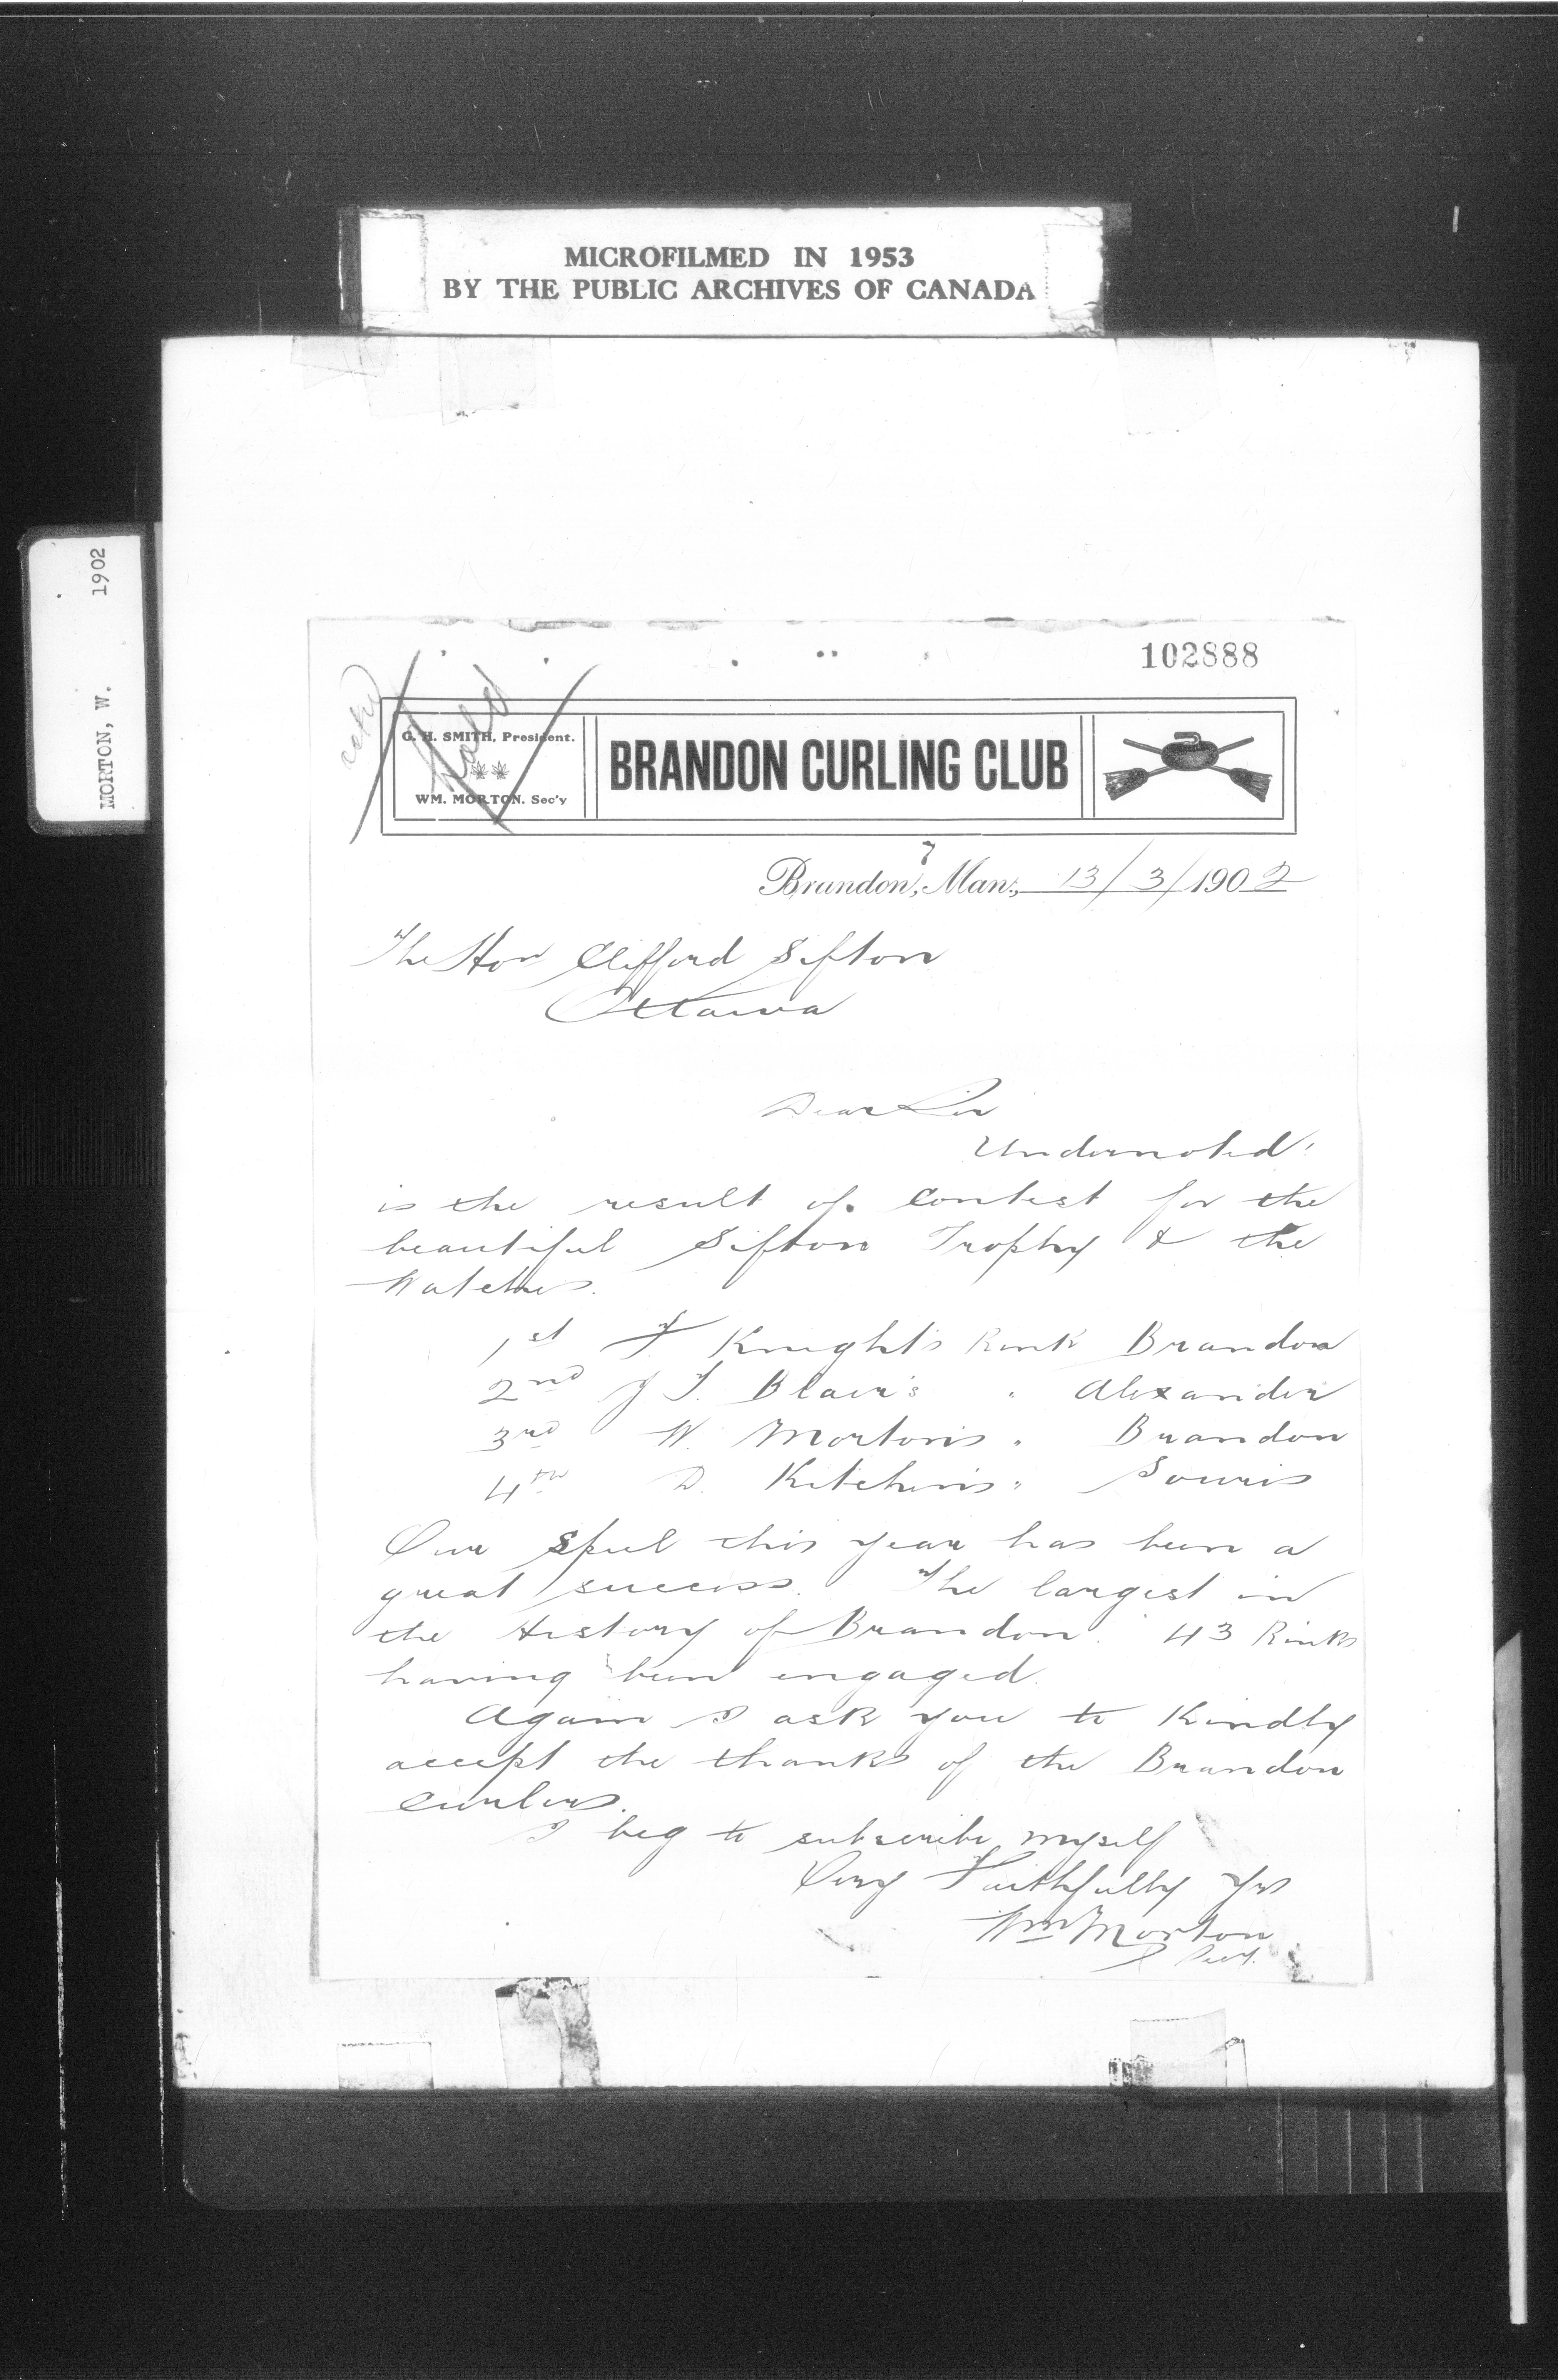 MICROFILMED IN 1953
BY THE PUBLIC ARCHIVES OF CANADA
MORTON, W. 1902
102888
G. H. SMITH, President.
WM. MORTON. Sec'y
BRANDON CURLING CLUB
Brandon, Man., 13/3/1902
The Hon Clifford Sifton
Ottawa
Dear Sir
Undernoted
is the result of contest for the
beautiful Sifton Trophy & the
Watches.
1st F Knight's Rink Brandon
2nd J T. Blair's " Alexander
3rd W. Morton's " Brandon
4th D. Kitchen's " Souris
Our Spiel this year has been a
great success. The largest in
the History of Brandon. 43 Rinks
having been engaged.
Again I ask you to Kindly
accept the thanks of the Brandon
Curlers.
I beg to subscribe myself
Very Faithfully Yrs
Wm Morton
Secy.